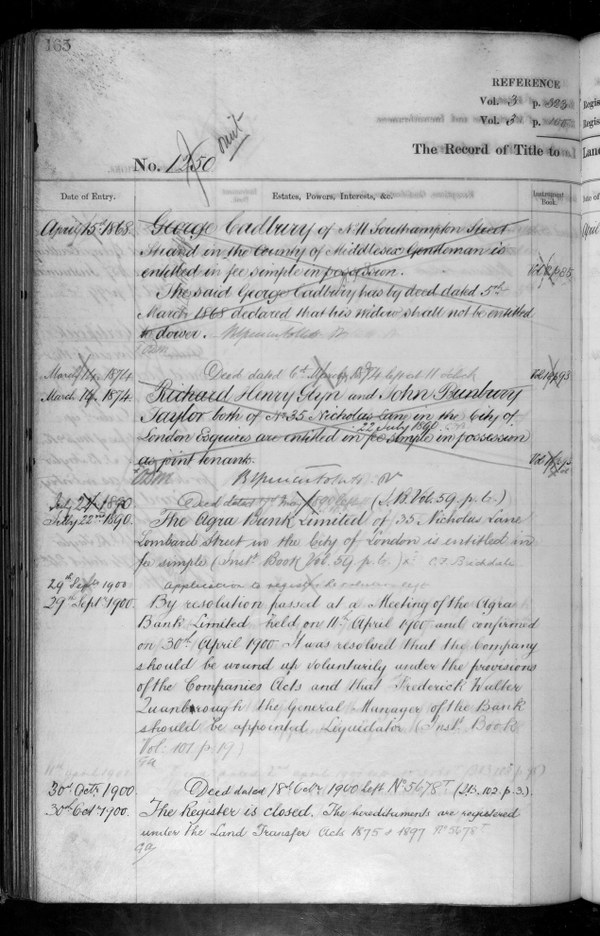 163
REFERENCE
Vol. 3 p. 323
Vol. 3 p.
omit
No. 1250
The Record of Title to
Date of Entry.
Estates, Powers, Interests, &c.
Instrument Book.
April 15th 1868.
George Cadbury of No 11 Southampton Street
Strand in the County of Middlesex Gentleman is
entitled in fee simple in possession.
The said George Cadbury has by deed dated 5th
March 1868 declared that his widow shall not be entitled
to dower.
March 14, 1874
Deed dated 6th March 1874 left at 11 o'clock
March 14, 1874.
Richard Henry Glyn and John Bunbury
Taylor both of No 35 Nicholas Lane in the City of
London Esquires are entitled in fee simple in possession
22 July 1890
as joint tenants.
July 21 1890
Deed dated (I.B. Vol. 59. p. 6.)
July 22nd 1890.
The Agra Bank Limited of 35 Nicholas Lane
Lombard Street in the City of London is entitled in
fee simple (Inst. Book Vol. 59 p. 6.)
29th Septr 1900
Application to register
29th Septr 1900.
By resolution passed at a Meeting of the Agra
Bank Limited held on 11th April 1900 and confirmed
on 30th April 1900 It was resolved that the Company
should be wound up voluntarily under the provisions
of the Companies Acts and that Frederick Walter
Quanborough the General Manager of the Bank
should be appointed Liquidator (Inst. Book
Vol. 101. p. 19)
30th Octr 1900.
Deed dated 18th Octr 1900 left No 5678T (I.B. 102. p. 3.)
30th Octr 1900.
The Register is closed. The hereditaments are registered
under the Land Transfer Acts 1875 & 1897 No 5678T
Regis
Regis
Land
April